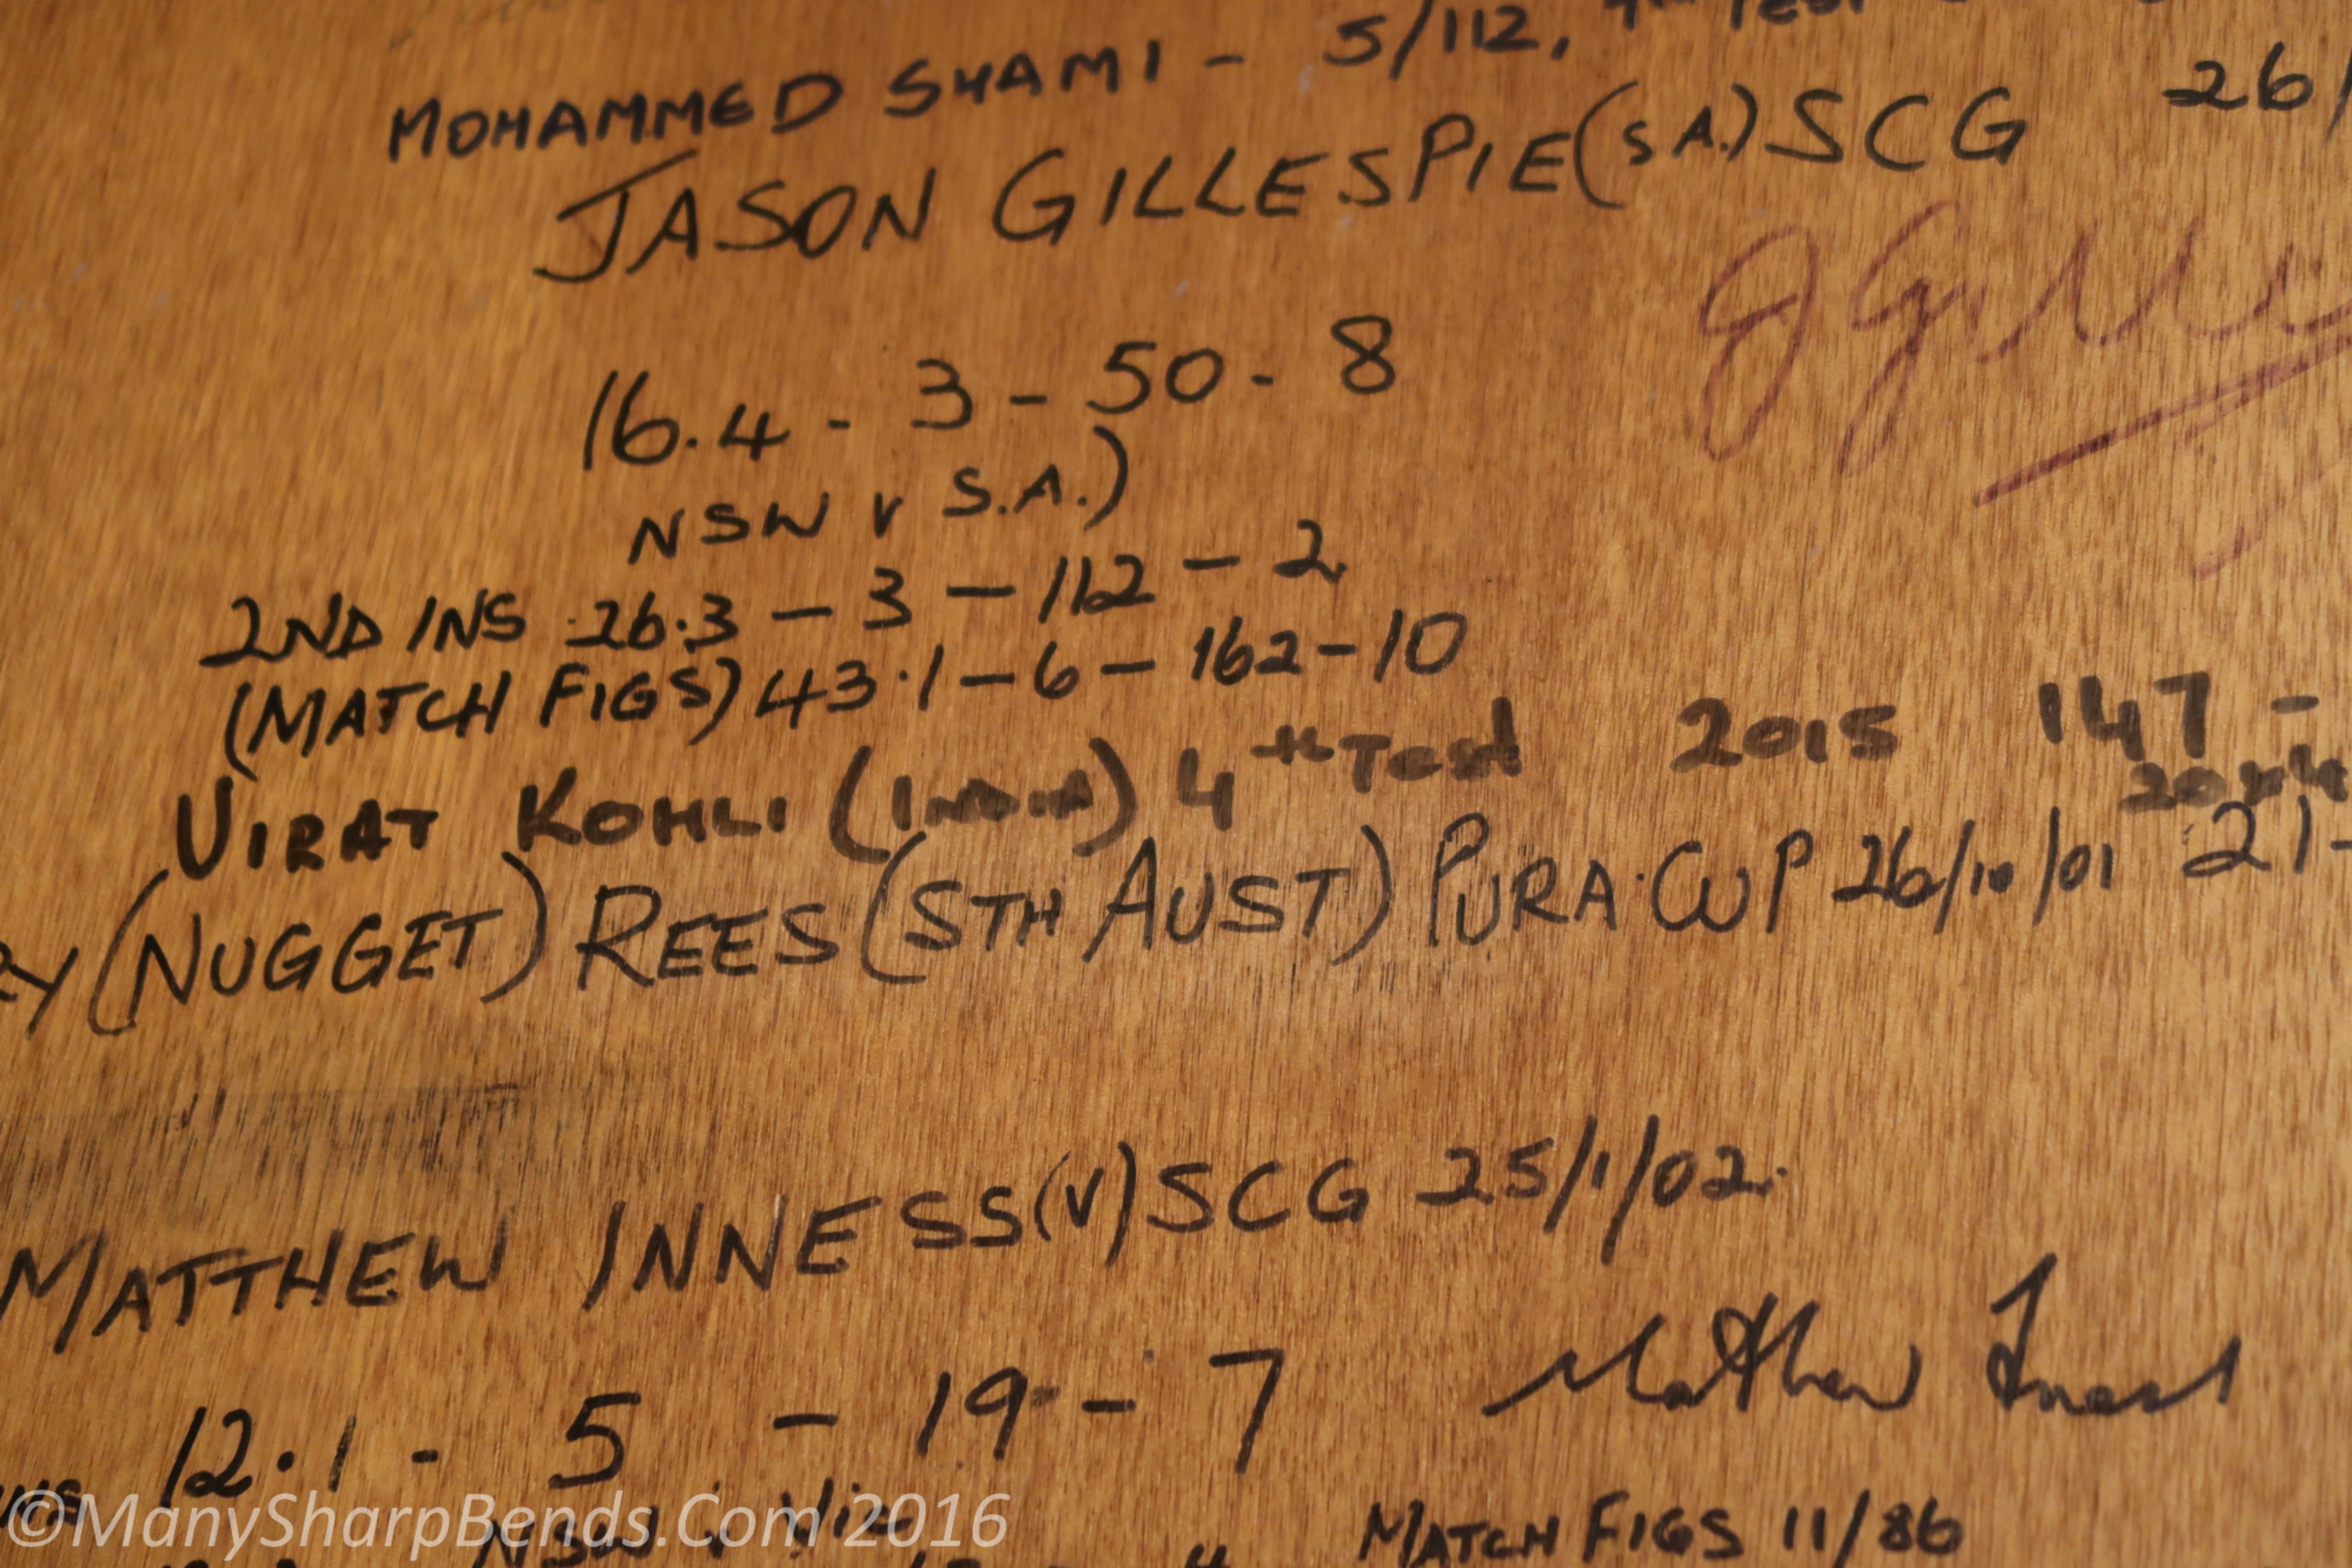 MOHAMMED SHAMI - 5/112, 4th TEST
JASON GILLESPIE (S.A.) SCG 26/
16.4 - 3 - 50 - 8
NSW v S.A.)
2ND INS 26.3 - 3 - 112 - 2
(MATCH FIGS) 43.1 - 6 - 162 - 10
VIRAT KOHLI (INDIA) 4th Test 2015 147 -
(NUGGET) REES (STH AUST) PURA CUP 26/10/01 21-
MATTHEW INNESS (V) SCG 25/1/02.
12.1 - 5 - 19 - 7 Matthew Inness
NSW v Vic MATCH FIGS 11/86
©ManySharpBends.Com 2016